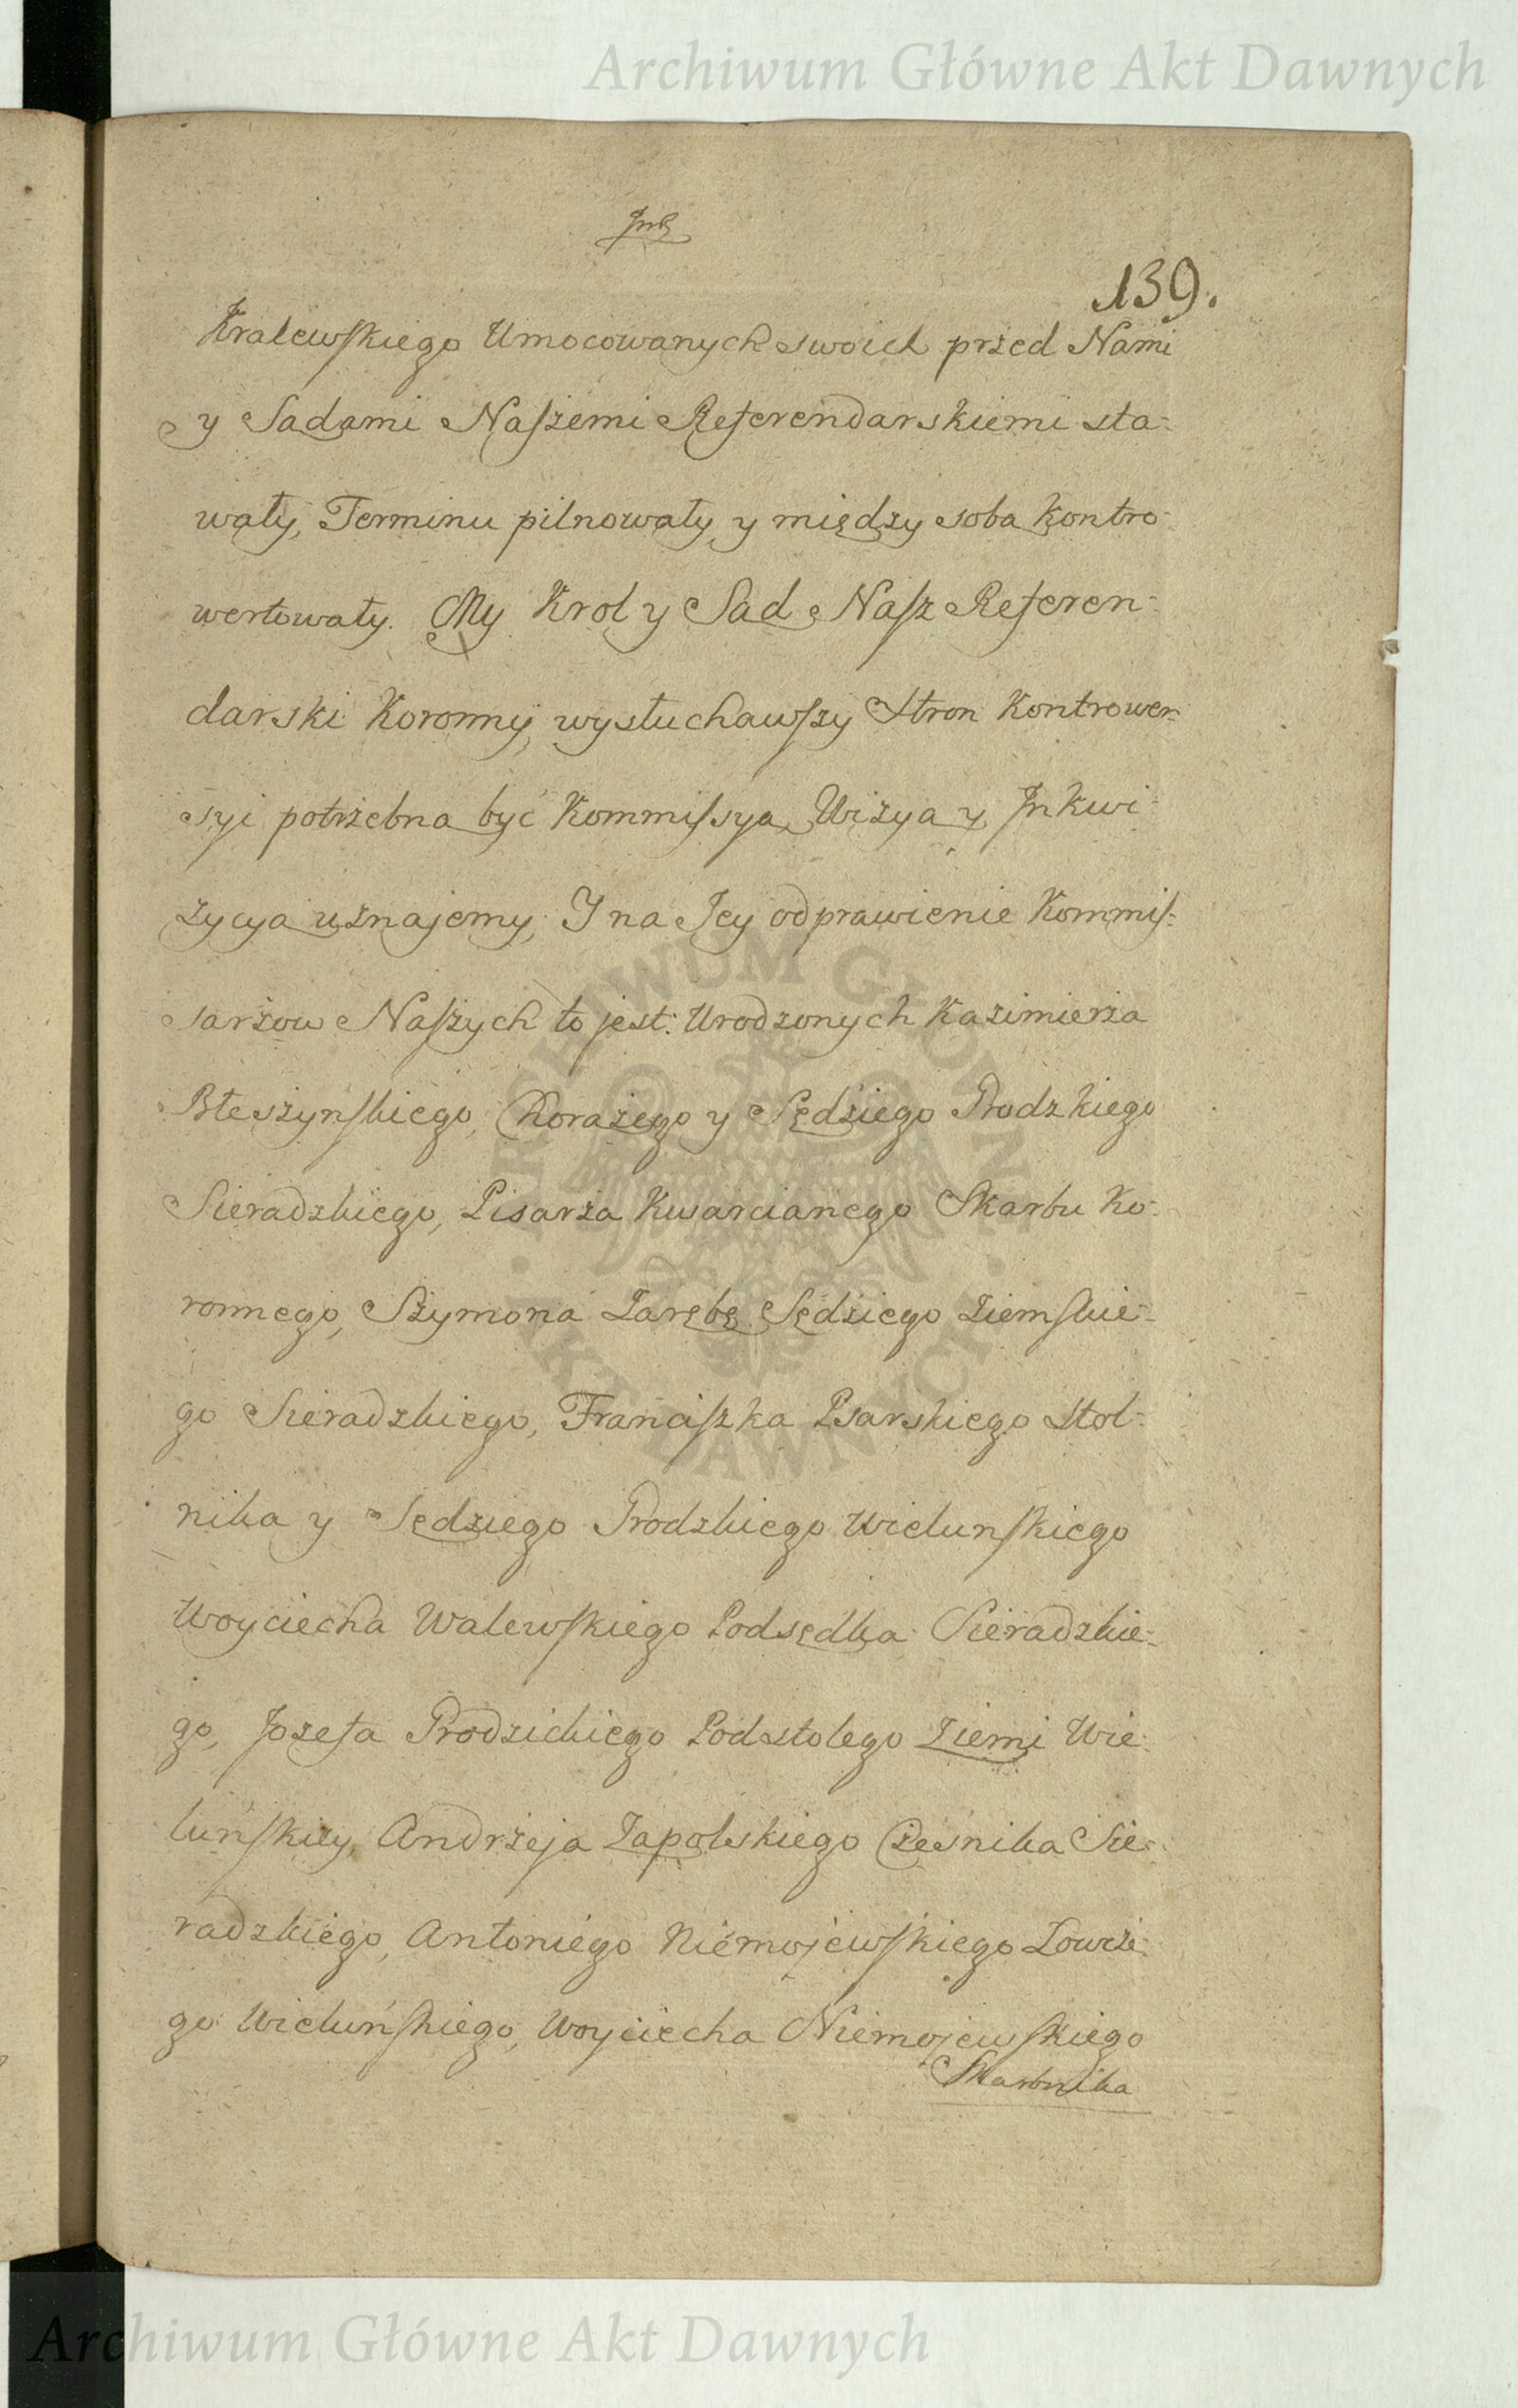 Archiwum Główne Akt Dawnych
139.
Kralewskiego Umocowanych swoich przed Nami
y Sądami Naszemi Referendarskiemi sta-
wały, Terminu pilnowały, y między sobą kontro-
wertowały. My Krol y Sąd Nasz Referen-
darski Koronny, wysłuchawszy Stron Kontrower-
syi potrzebną być Kommissyą, Wizyą y Inkwi-
zycyą uznajemy; I na Jey odprawienie Kommis-
sarzow Naszych to jest: Urodzonych Kazimierza
Błeszyńskiego, Chorążego y Sędziego Grodzkiego
Sieradzkiego, Pisarza Kwarcianego Skarbu Ko-
ronnego, Szymona Zarębę Sędziego Ziemskie-
go Sieradzkiego, Franciszka Psarskiego Stol-
nika y Sędziego Grodzkiego Wielunskiego
Woyciecha Walewskiego Podsędka Sieradzkie-
go, Jozefa Grodzickiego Podstolego Ziemi Wie-
luńskiey, Andrzeja Zapolskiego Cześnika Sie-
radzkiego, Antoniego Niemojewskiego Łowcze-
go Wieluńskiego, Woyciecha Niemojewskiego
Skarbnika
ARCHIWUM GŁÓWNE AKT DAWNYCH
Archiwum Główne Akt Dawnych